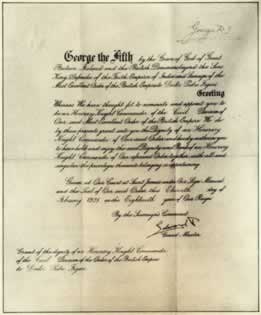 George R. I.
George the Fifth by the Grace of God of Great
Britain Ireland and the British Dominions beyond the Seas
King, Defender of the Faith, Emperor of India and Sovereign of the
Most Excellent Order of the British Empire to Doctor Pedro
Greeting
Whereas We have thought fit to nominate and appoint you to
be an Honorary Knight Commander of the Civil Division of
Our said Most Excellent Order of the British Empire We do
by these presents grant unto you the Dignity of an Honorary
Knight Commander of Our said Order and hereby authorise you
to have hold and enjoy the said Dignity and Rank of an Honorary
Knight Commander of Our aforesaid Order together with all and
singular the privileges thereunto belonging or appertaining
Given at Our Court at Saint James's under Our Sign Manual
and the Seal of Our said Order this Eleventh day of
February in the Eighteenth year of Our Reign
By the Sovereign's Command
Grand Master
Grant of the dignity of an Honorary Knight Commander
of the Civil Division of the Order of the British Empire
to Doctor Pedro